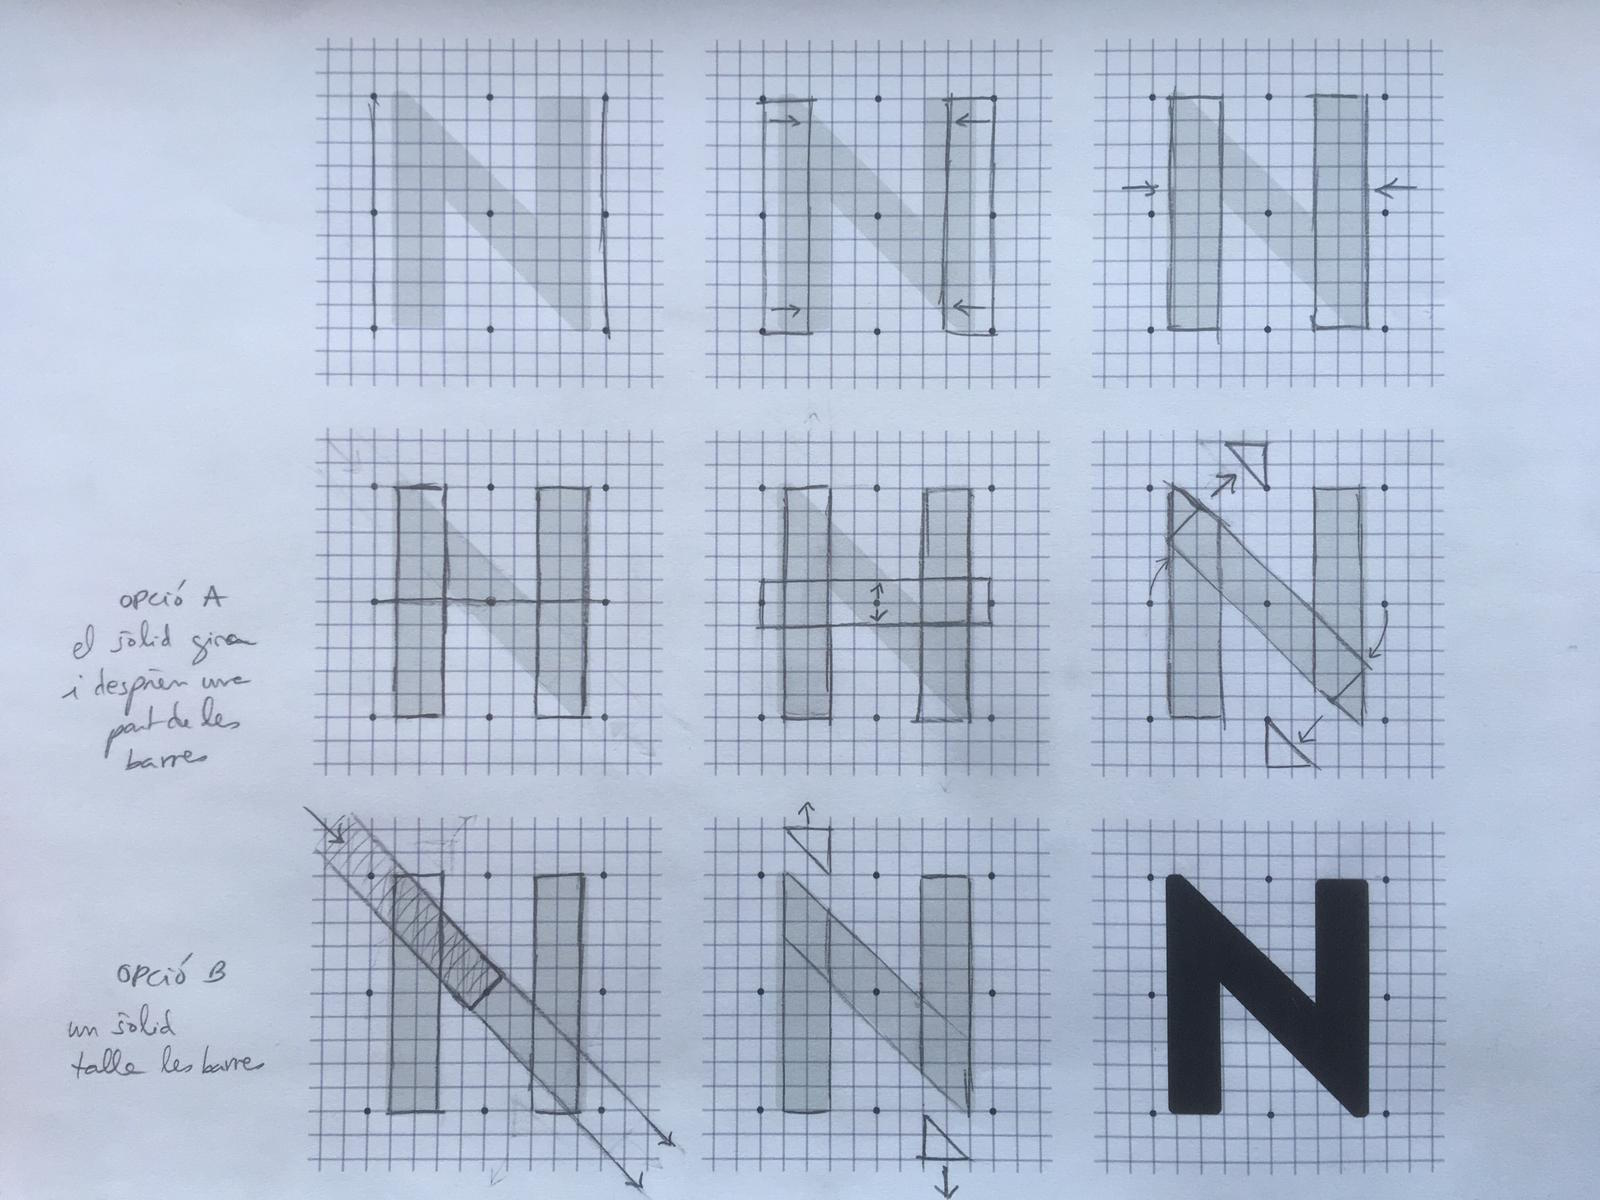 opció A
el sòlid gira
i desprèn una
part de les
barres
opció B
un sòlid
talla les barres
N